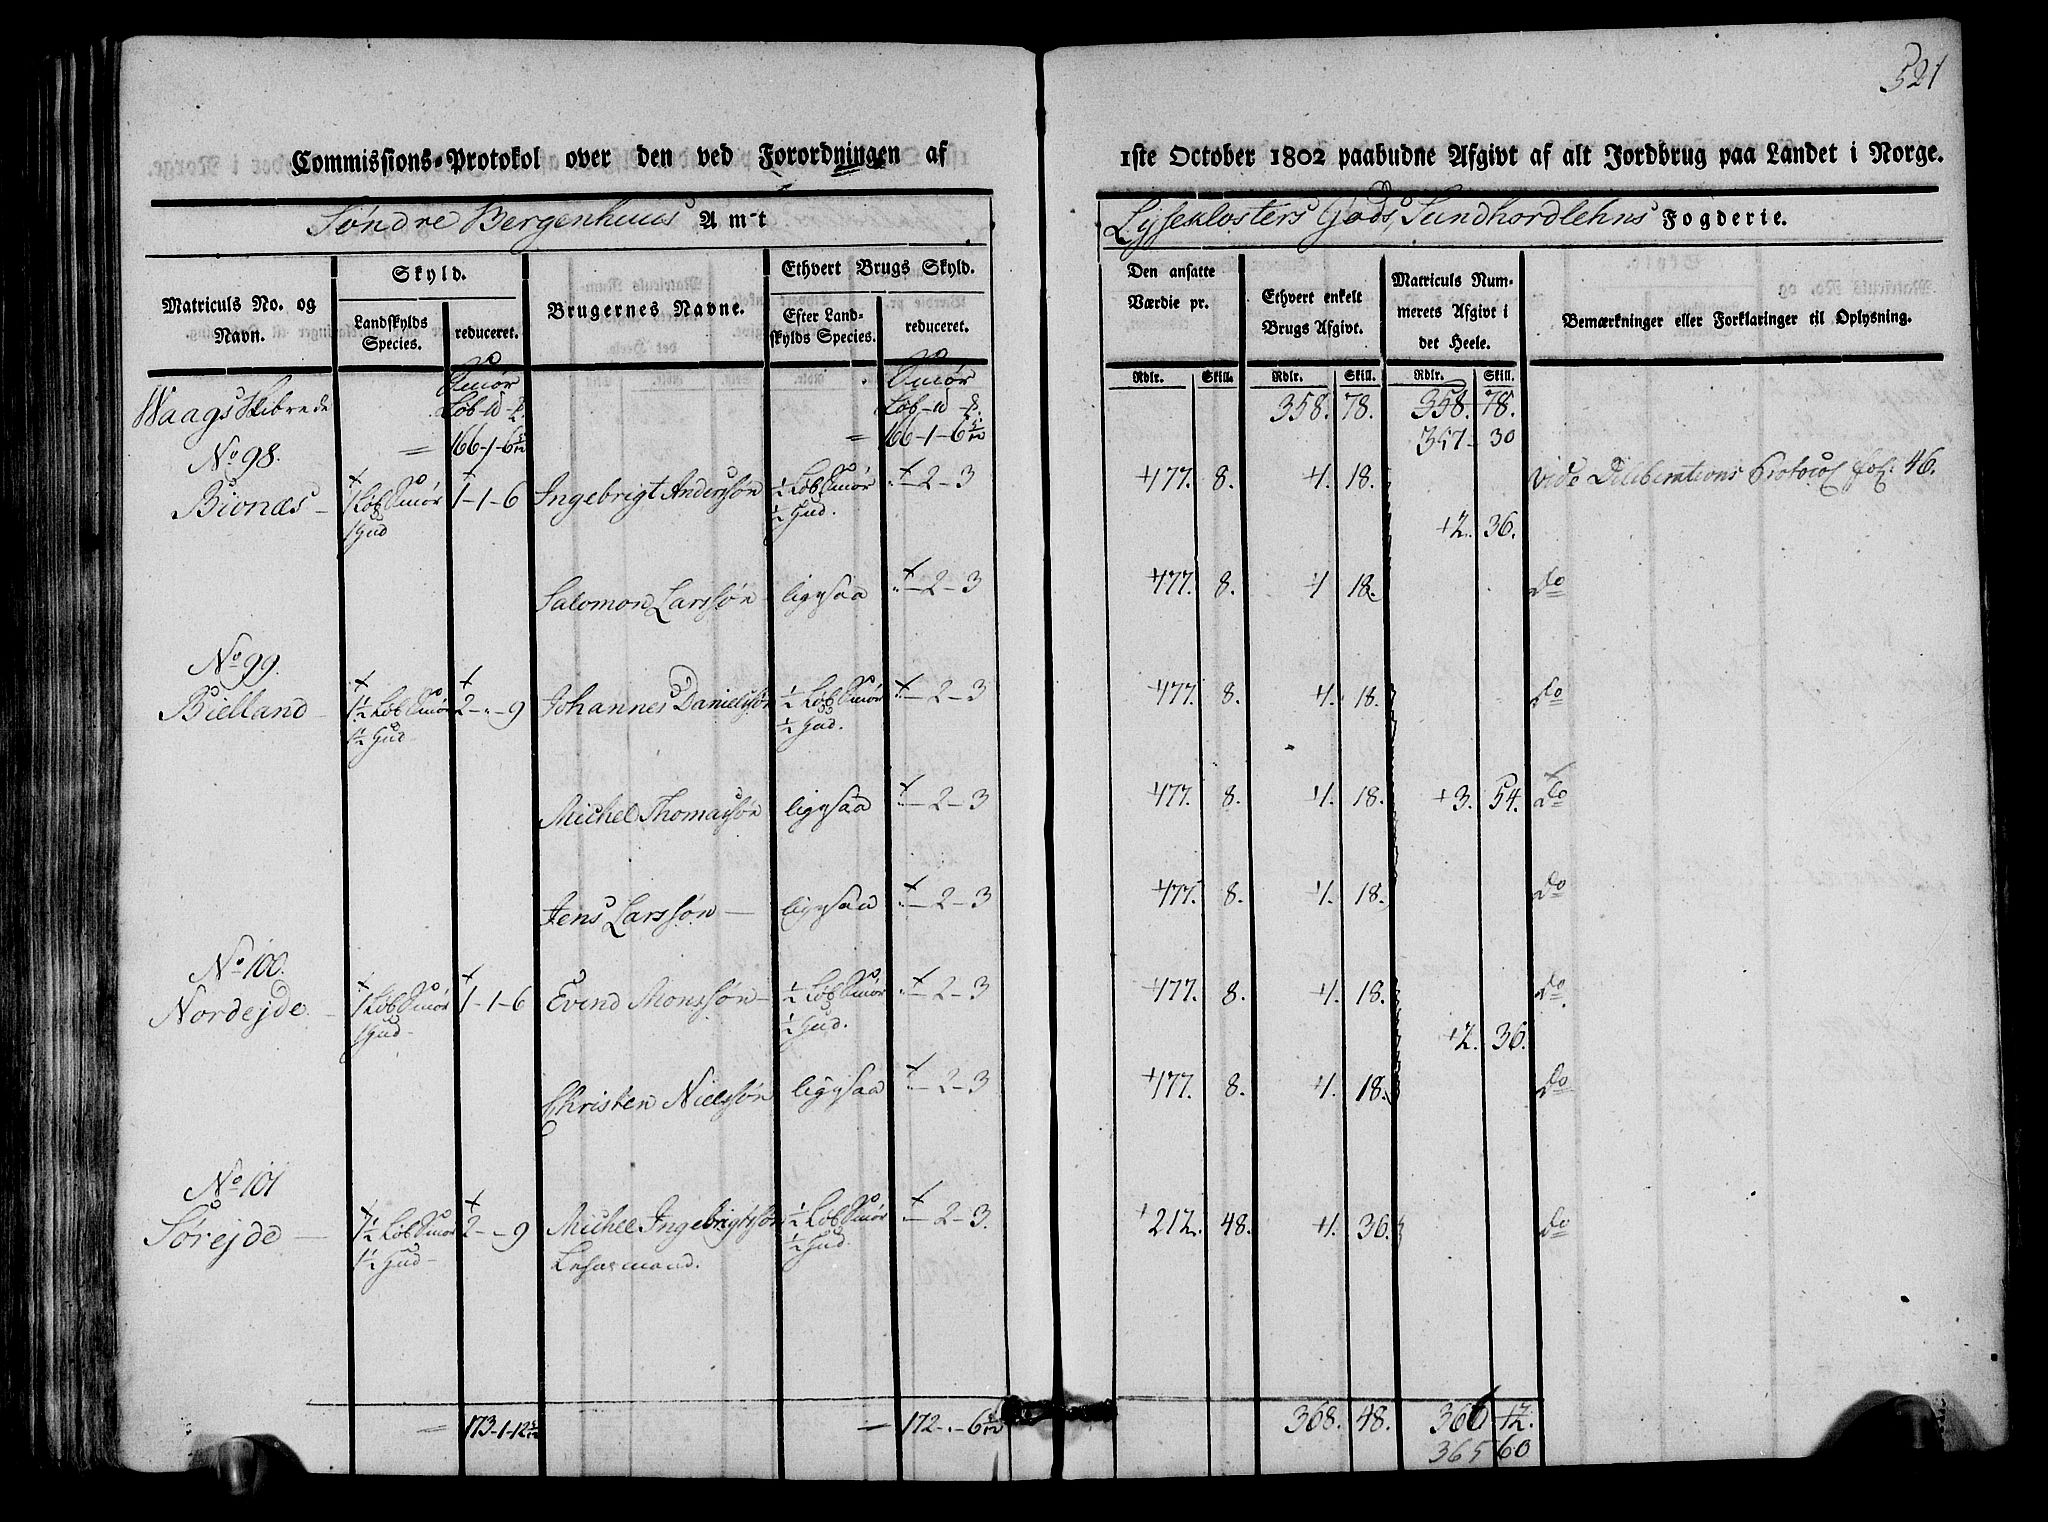 521
Commissions-Protokol over den ved Forordningen af 1ste October 1802 paabudne Afgivt af alt Jordbrug paa Landet i Norge.
Søndre Bergenhuus Amt
Lyseklosters Gods, Sundhordlehns Fogderie.
Matriculs No. og Navn. Skyld. Landskylds Species. reduceret. Brugernes Navne. Ethvert Brugs Skyld. Efter Landskylds Species. reduceret. Den ansatte Værdie pr. Ethvert enkelt Brugs Afgivt. Matriculs Nummerets Afgivt i det Heele. Bemærkninger eller Forklaringer til Oplysning.
Rdlr. Skill. Rdlr. Skill. Rdlr. Skill.
Smør Smør
Waags Skibrede Løb - Løb - 358. 78. 358. 78.
= 166-1-6 5/12 = 166-1-6 5/12 357-30
No 98.
Bionæs - 1 Løb Smør 1-1-6 Ingebrigt Anderssøn 1/2 Løb Smør "-2-3 177. 8. 1. 18. vide Deliberations Protocol fol: 46.
1 Hud 1/2 Hud. 2. 36.
Salomon Larssøn ligesaa "-2-3 177. 8. 1 18. do
No 99.
Bielland - 1 1/2 Løb Smør 2-"-9 Johannes Danielssøn 1/2 Løb Smør "-2-3 177. 8. 1. 18. do
1 1/2 Hud 1/2 Hud.
Michel Thomassøn ligesaa "-2-3 177. 8. 1. 18. 3. 54. do
Jens Larssøn - ligesaa "-2-3 177. 8. 1. 18. do
No 100.
Nordejde - 1 Løb Smør 1-1-6 Evind Monssøn - 1/2 Løb Smør "-2-3 177. 8. 1. 18. do
1 Hud - 1/2 Hud. 2. 36.
Christen Nielssøn ligesaa "-2-3 177. 8. 1. 18. do
No 101
Sørejde - 1 1/2 Løb Smør 2-"-9 Michel Ingebrigtssøn 1/2 Løb Smør "-2-3. 212. 48. 1. 36. do
1 1/2 Hud - Lehnsmand. 1/2 Hud.
= 173-1-12 5/12 = 172-"-6 5/12 368. 48. 366 12.
365 60